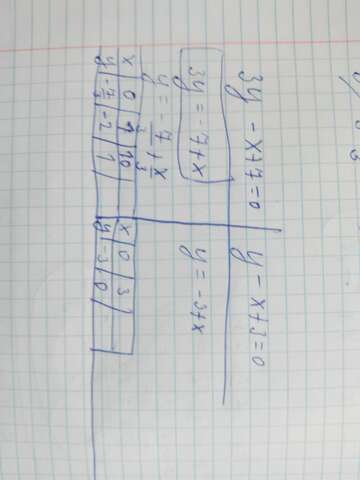 3y - x + 7 = 0
y - x + 3 = 0
3y = -7 + x
y = -3 + x
y = -7 + x/3
x | 0 | 1 | 10
y | -7/3 | -2 | 1
x | 0 | 3
y | -3 | 0